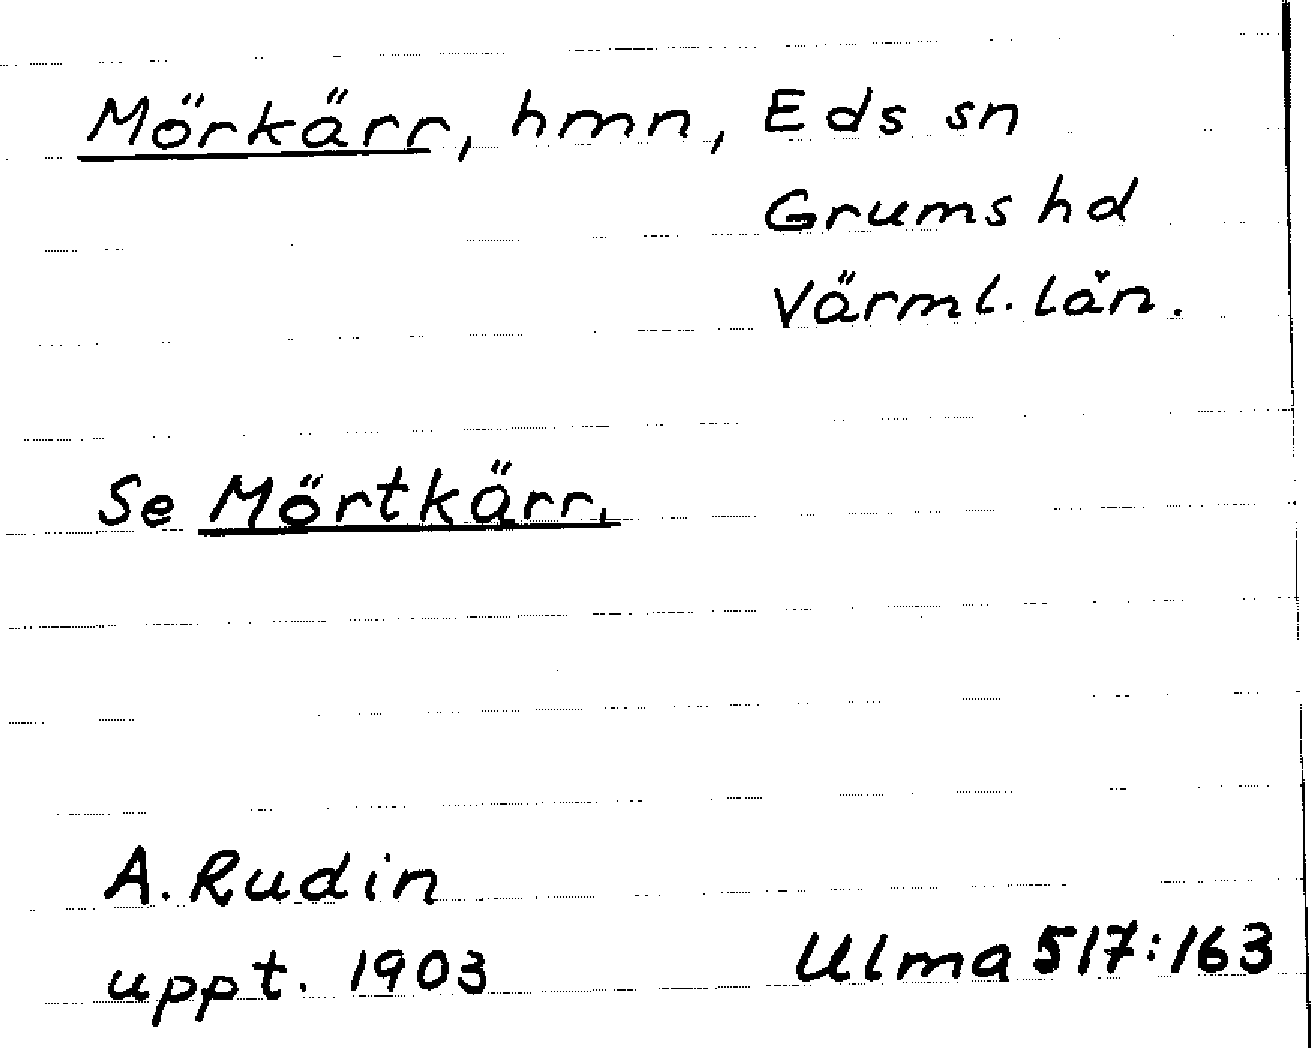 Mörkärr, hmn, Eds sn
Grums hd
Värml. län.
Se Mörtkärr.
A. Rudin
uppt. 1903
Ulma 517:163